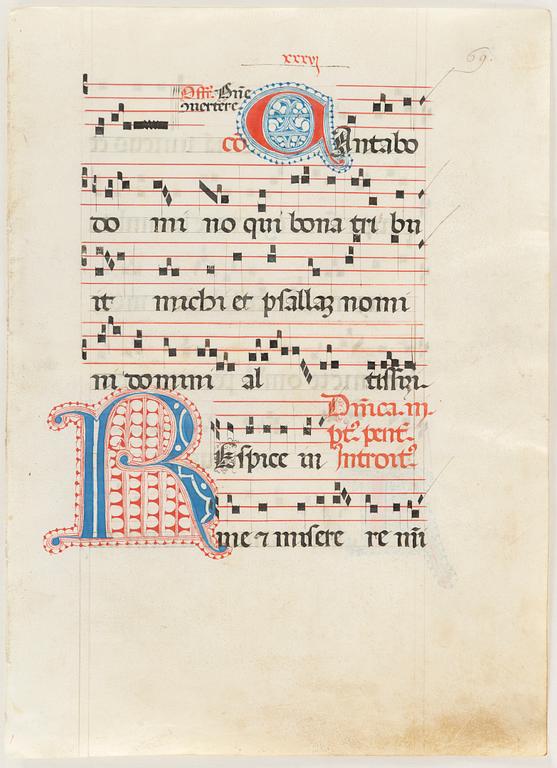 xxxvj
69.
Off. Dñe
Convertere.
cõ CAntabo
do mi no qui bona tri bu
it michi et psallaʒ nomi
ni domini al tissimi.
Dñica .iij.
pt̃. pent̃.
REspice in Introit̃.
me ⁊ misere re mi